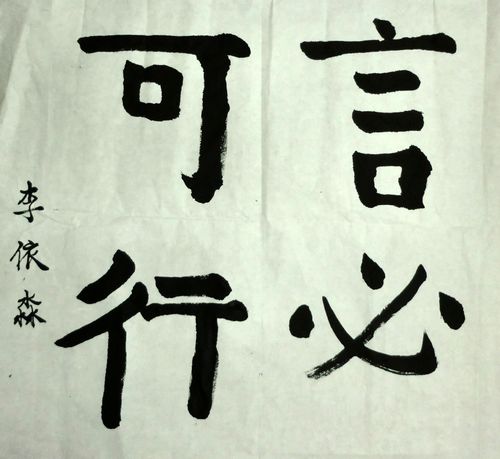 言必
可行
李依淼